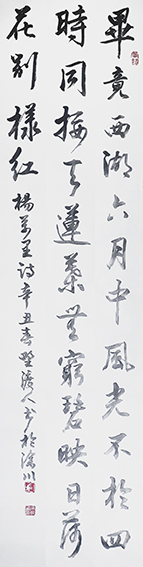 畢竟西湖六月中風光不於四
時同接天蓮葉無窮碧映日荷
花別樣紅 楊萬里詩辛丑春野渡人書於滁川